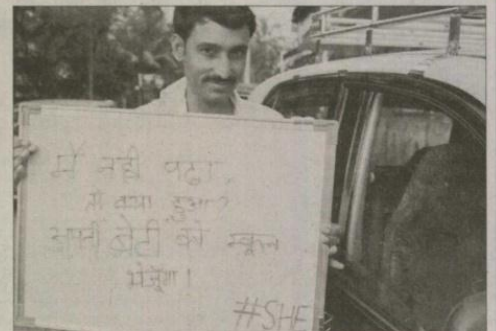 मैं नहीं पढ़ा,
तो क्या हुआ?
अपनी बेटी को स्कूल
भेजूंगा!
#SHE